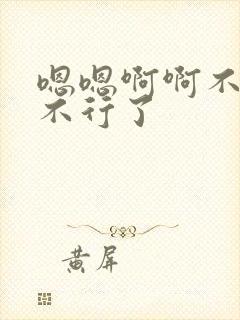 嗯嗯啊啊不
不行了
黄屏